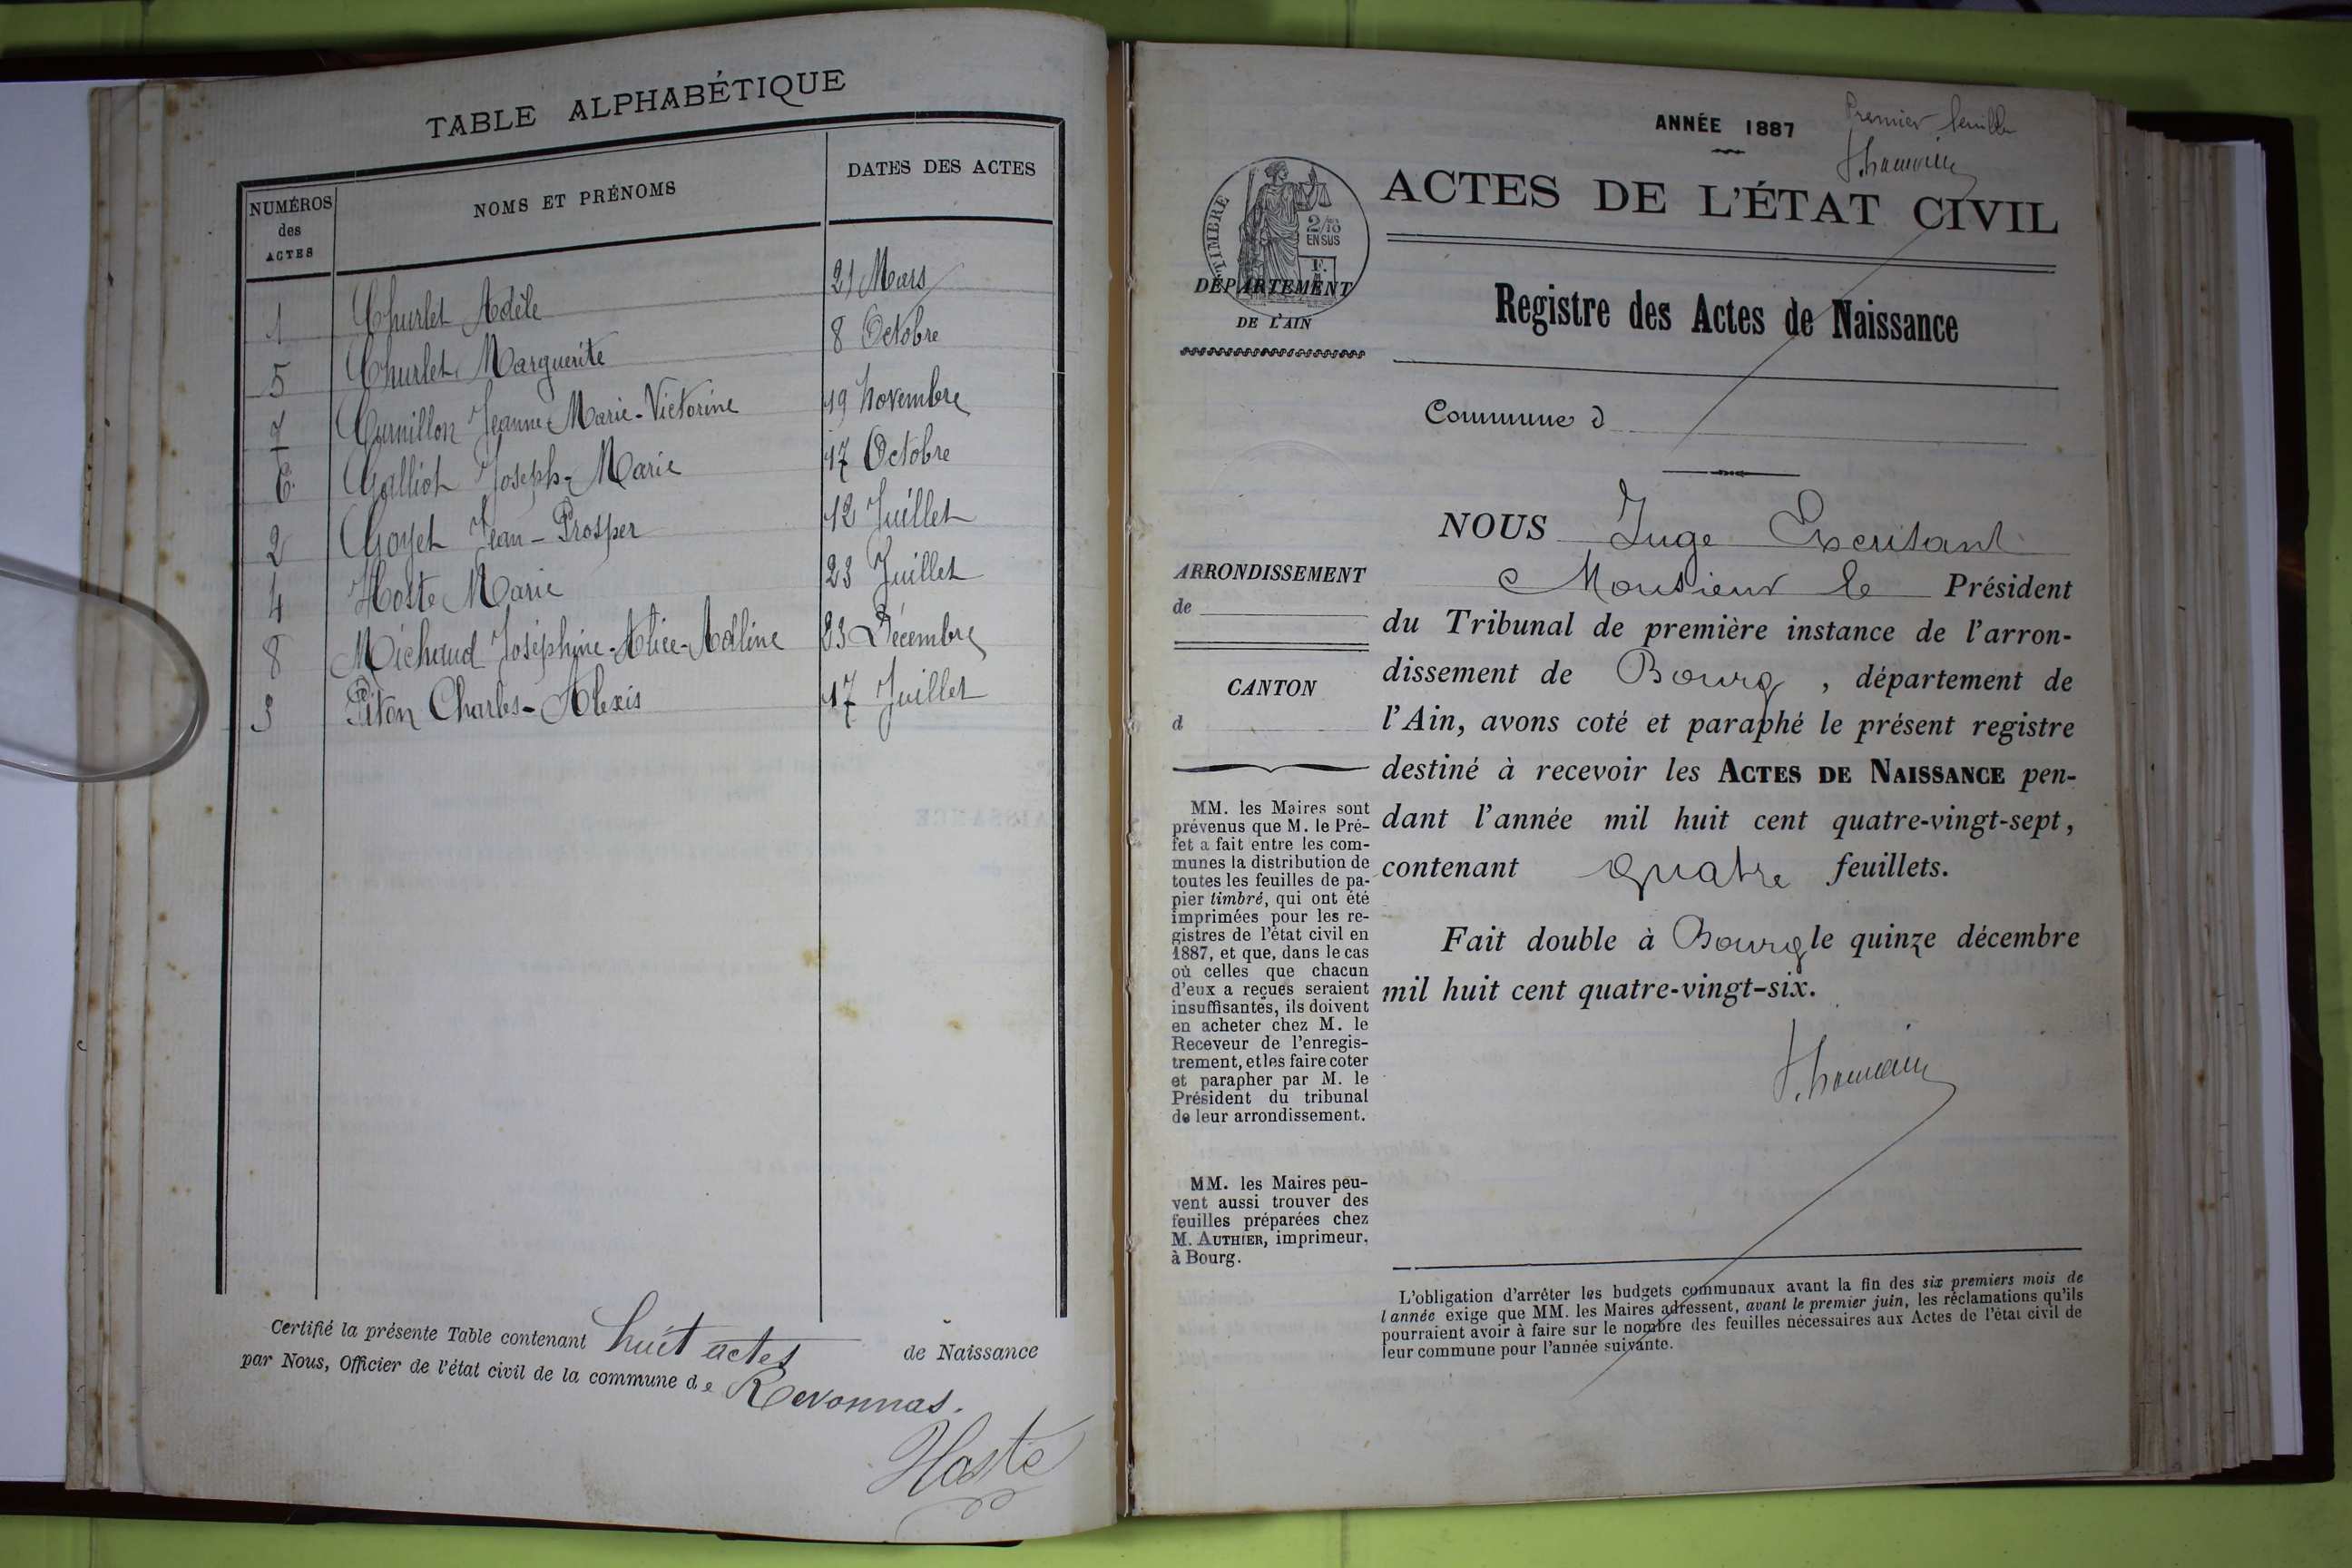 TABLE ALPHABÉTIQUE
NUMÉROS des ACTES
NOMS ET PRÉNOMS
DATES DES ACTES
1 Churlet Adèle 21 Mars
5 Churlet Marguerite 8 Octobre
7 Curnillon Jeanne-Marie-Victorine 19 Novembre
6 Galliot Joseph-Marie 17 Octobre
2 Goyet Jean-Prosper 12 Juillet
4 Hoste Marie 23 Juillet
8 Michaud Joséphine-Alice-Adline 23 Décembre
3 Piton Charles-Alexis 17 Juillet
Certifié la présente Table contenant huit actes de Naissance
par Nous, Officier de l'état civil de la commune de Revonnas.
Hoste
ANNÉE 1887
Premier feuillet
ACTES DE L'ÉTAT CIVIL
TIMBRE
2/10
EN SUS
DÉPARTEMENT
DE L'AIN
Registre des Actes de Naissance
Commune d
NOUS Juge
Monsieur le Président
du Tribunal de première instance de l'arron-
dissement de Bourg, département de
l'Ain, avons coté et paraphé le présent registre
destiné à recevoir les ACTES DE NAISSANCE pen-
dant l'année mil huit cent quatre-vingt-sept,
contenant quatre feuillets.
Fait double à Bourg le quinze décembre
mil huit cent quatre-vingt-six.
ARRONDISSEMENT
de
CANTON
d
MM. les Maires sont
prévenus que M. le Pré-
fet a fait entre les com-
munes la distribution de
toutes les feuilles de pa-
pier timbré, qui ont été
imprimées pour les re-
gistres de l'état civil en
1887, et que, dans le cas
où celles que chacun
d'eux a reçues seraient
insuffisantes, ils doivent
en acheter chez M. le
Receveur de l'enregis-
trement, et les faire coter
et parapher par M. le
Président du tribunal
de leur arrondissement.
MM. les Maires peu-
vent aussi trouver des
feuilles préparées chez
M. AUTHIER, imprimeur,
à Bourg.
L'obligation d'arrêter les budgets communaux avant la fin des six premiers mois de
l'année exige que MM. les Maires adressent, avant le premier juin, les réclamations qu'ils
pourraient avoir à faire sur le nombre des feuilles nécessaires aux Actes de l'état civil de
leur commune pour l'année suivante.